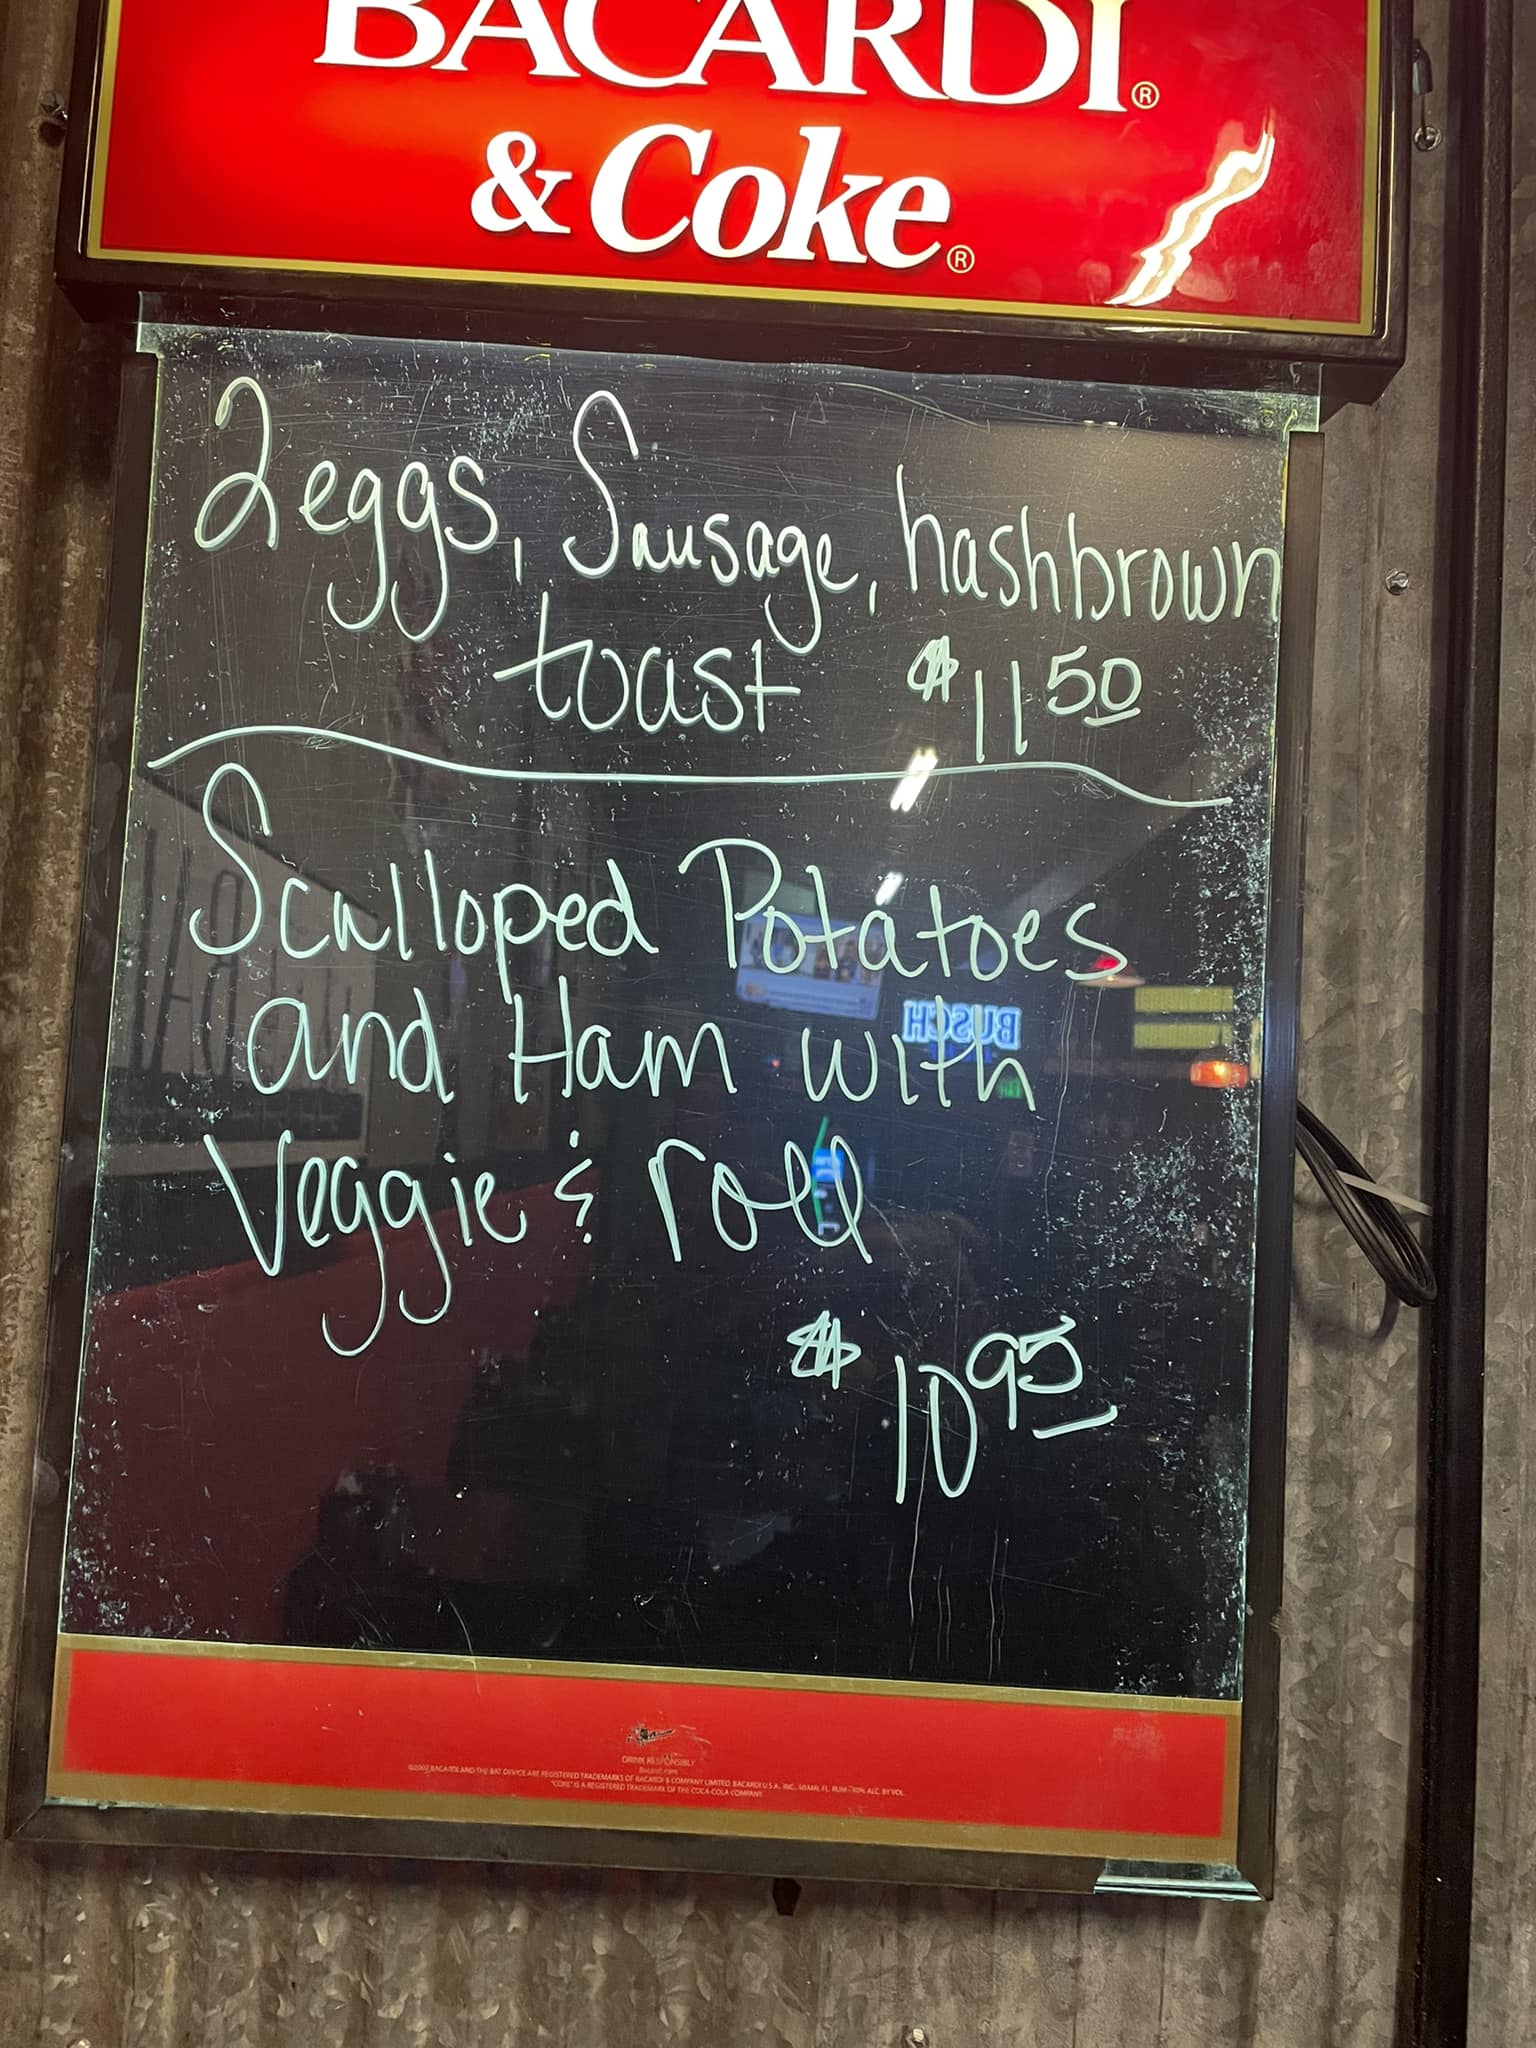 BACARDI®
& Coke®
2 eggs, Sausage, hashbrown
toast $11 50
Scalloped Potatoes
and Ham with
Veggie & roll
$10 95
BUSCH
DRINK RESPONSIBLY
Bacardi.com
©2007 BACARDI AND THE BAT DEVICE ARE REGISTERED TRADEMARKS OF BACARDI & COMPANY LIMITED. BACARDI U.S.A., INC., MIAMI, FL. RUM - 40% ALC. BY VOL.
"COKE" IS A REGISTERED TRADEMARK OF THE COCA-COLA COMPANY.